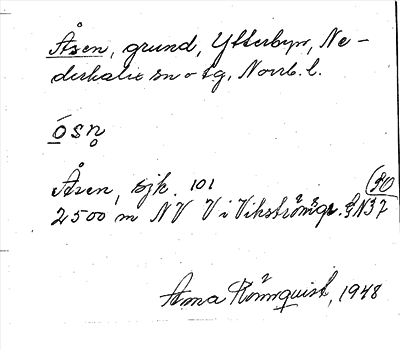 Åsen, grund, Ytterbyn, Ne-
derkalix sn o tg, Norrb. l.
ōsn̥
Åsen, sjk. 101
2500 m NV V i Vikströmsgr. N37
Anna Rönnquist, 1948